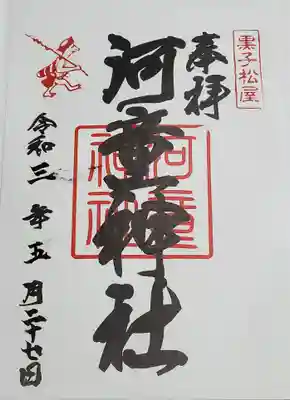 菓子松屋
奉拝
河童神社
河童神社
令和三年五月二十七日